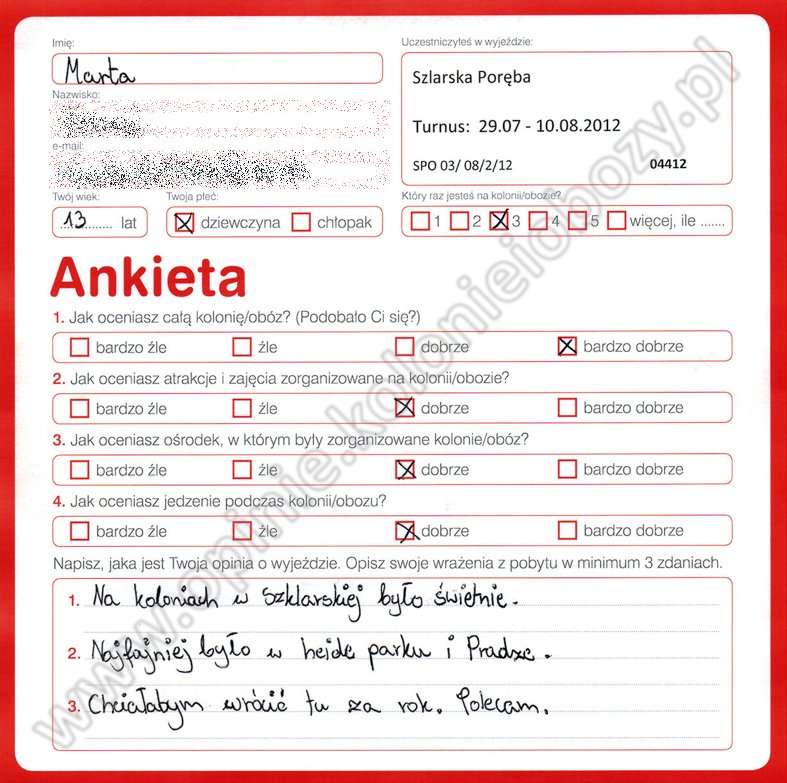 Imię:
Uczestniczyłeś w wyjeździe:
Marta
Szlarska Poręba
Nazwisko:
Turnus: 29.07 - 10.08.2012
e-mail:
SPO 03/ 08/2/12 04412
Twój wiek: Twoja płeć: Który raz jesteś na kolonii/obozie?
13 lat dziewczyna chłopak 1 2 3 4 5 więcej, ile .......
Ankieta
1. Jak oceniasz całą kolonię/obóz? (Podobało Ci się?)
bardzo źle źle dobrze bardzo dobrze
2. Jak oceniasz atrakcje i zajęcia zorganizowane na kolonii/obozie?
bardzo źle źle dobrze bardzo dobrze
3. Jak oceniasz ośrodek, w którym były zorganizowane kolonie/obóz?
bardzo źle źle dobrze bardzo dobrze
4. Jak oceniasz jedzenie podczas kolonii/obozu?
bardzo źle źle dobrze bardzo dobrze
Napisz, jaka jest Twoja opinia o wyjeździe. Opisz swoje wrażenia z pobytu w minimum 3 zdaniach.
1. Na koloniach w Szklarskiej było świetnie.
2. Najfajniej było w heide parku i Pradze.
3. Chciałabym wrócić tu za rok. Polecam.
www.opinie.kolonieiobozy.pl